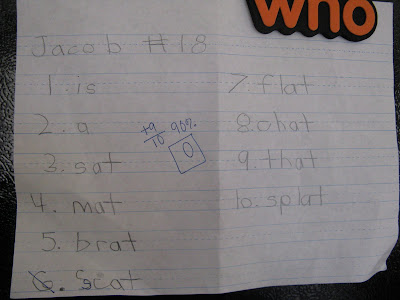 WHO
Jacob #18
1. is
2. a
3. sat
4. mat
5. brat
6. scat
7. flat
8. chat
9. that
10. splat
+9/10 90%
0